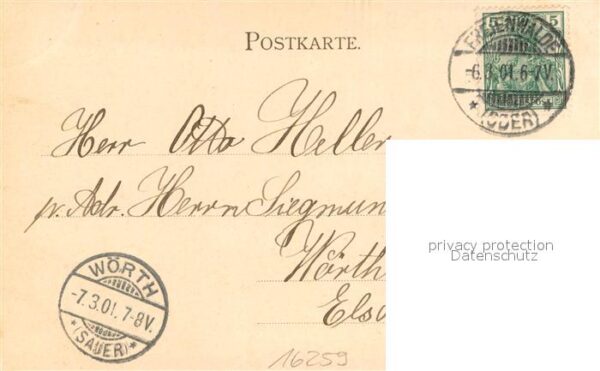 POSTKARTE.
FREIENWALDE
-6.3.01.6-7V.
*(ODER)*
5
Herr Otto Heller
p. Adr. Herrn Siegmun
Wörth
Els
privacy protection
Datenschutz
WÖRTH
-7.3.01.7-8V.
*(SAUER)*
16259